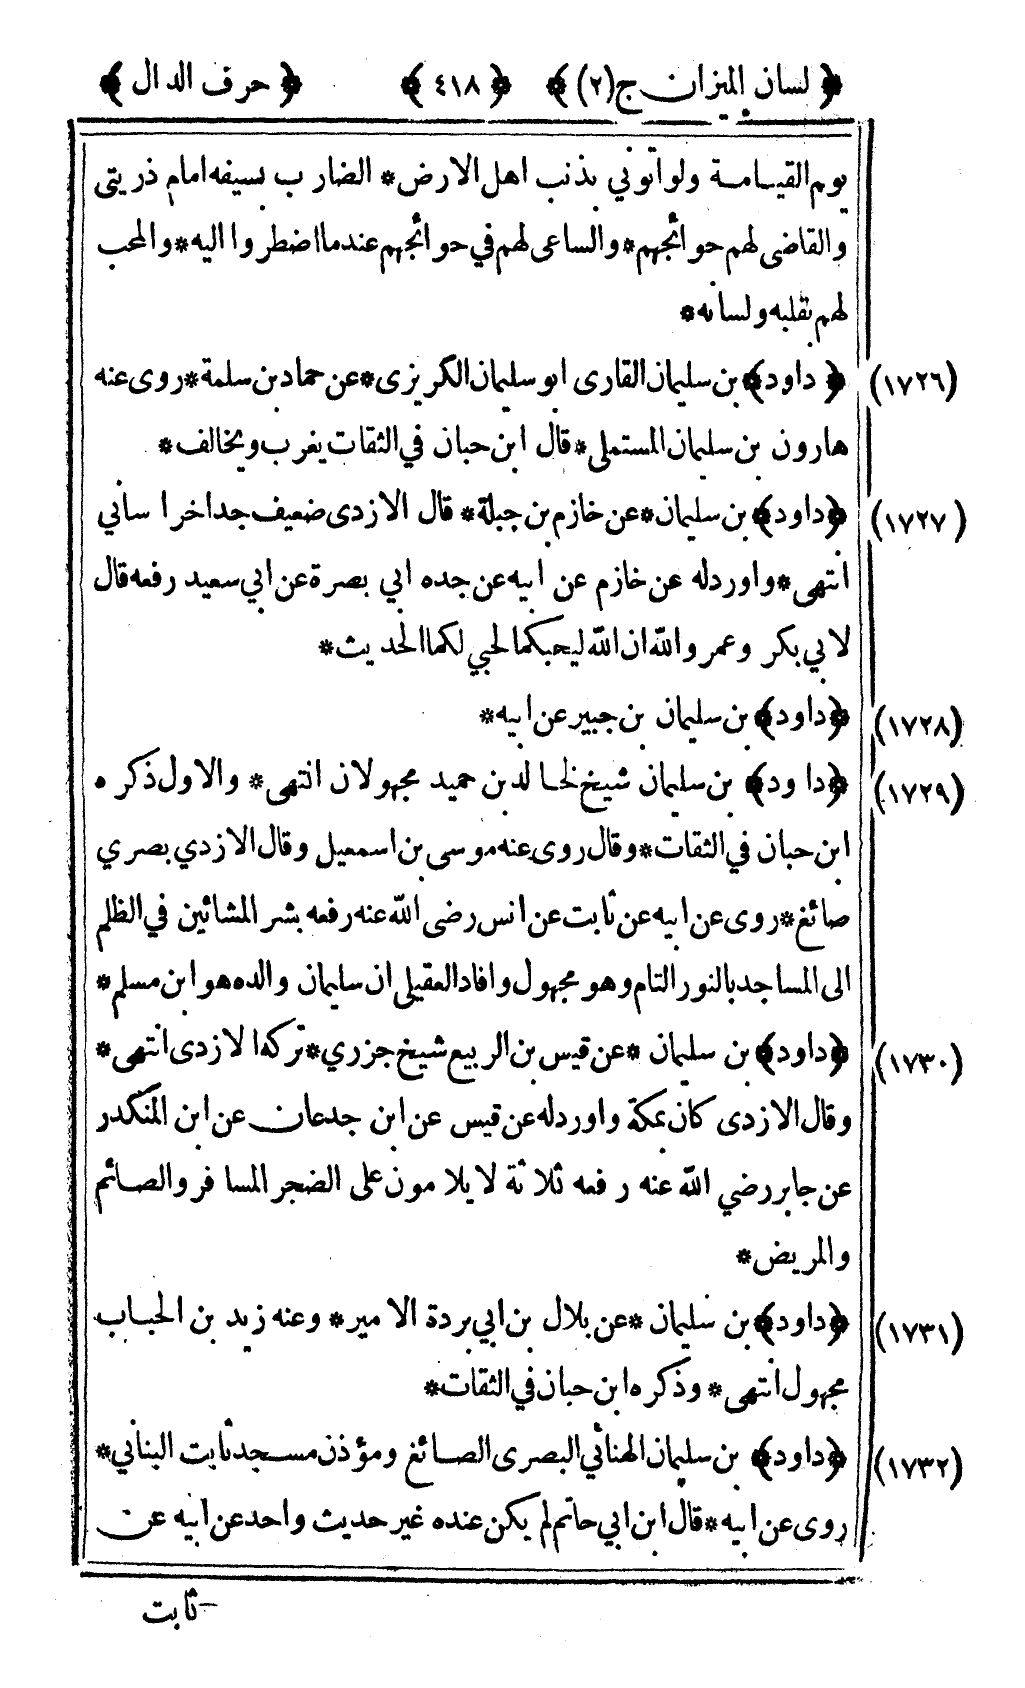 ﴿ لسان الميزان ج (٢) ﴾ ﴿ ٤١٨ ﴾ ﴿ حرف الدال ﴾
يوم القيامة ولو اتوني بذنب اهل الارض * الضارب بسيفه امام ذريتى
والقاضى لهم حوائجهم * والساعى لهم في حوائجهم عندما اضطروا اليه * والمحب
لهم بقلبه ولسانه *
(١٧٢٦) ﴿ داود ﴾ بن سليمان القارى ابو سليمان الكريزى * عن حماد بن سلمة * روى عنه
هارون بن سليمان المستملى * قال ابن حبان في الثقات يغرب ويخالف *
(١٧٢٧) ﴿ داود ﴾ بن سليمان * عن خازم بن جبلة * قال الازدى ضعيف جدا خراساني
انتهى * واورد له عن خازم عن ابيه عن جده ابي بصرة عن ابي سعيد رفعه قال
لابي بكر وعمر والله ان الله ليحبكما لحبي لكما الحديث *
(١٧٢٨) ﴿ داود ﴾ بن سليمان بن جبير عن ابيه *
(١٧٢٩) ﴿ داود ﴾ بن سليمان شيخ لخالد بن حميد مجهولان انتهى * والاول ذكره
ابن حبان في الثقات * وقال روى عنه موسى بن اسمعيل وقال الازدي بصري
صائغ * روى عن ابيه عن ثابت عن انس رضى الله عنه رفعه بشر المشائين في الظلم
الى المساجد بالنور التام وهو مجهول وافاد العقيلى ان سليمان والده هو ابن مسلم *
(١٧٣٠) ﴿ داود ﴾ بن سليمان * عن قيس بن الربيع شيخ جزري * تركه الازدى انتهى *
وقال الازدى كان بمكة واورد له عن قيس عن ابن جدعان عن ابن المنكدر
عن جابر رضي الله عنه رفعه ثلاثة لا يلامون على الضجر المسافر والصائم
والمريض *
(١٧٣١) ﴿ داود ﴾ بن سليمان * عن بلال بن ابي بردة الامير * وعنه زيد بن الحباب
مجهول انتهى * وذكره ابن حبان في الثقات *
(١٧٣٢) ﴿ داود ﴾ بن سليمان الهنائي البصرى الصائغ ومؤذن مسجد ثابت البناني *
روى عن ابيه * قال ابن ابي حاتم لم يكن عنده غير حديث واحد عن ابيه عن
ثابت